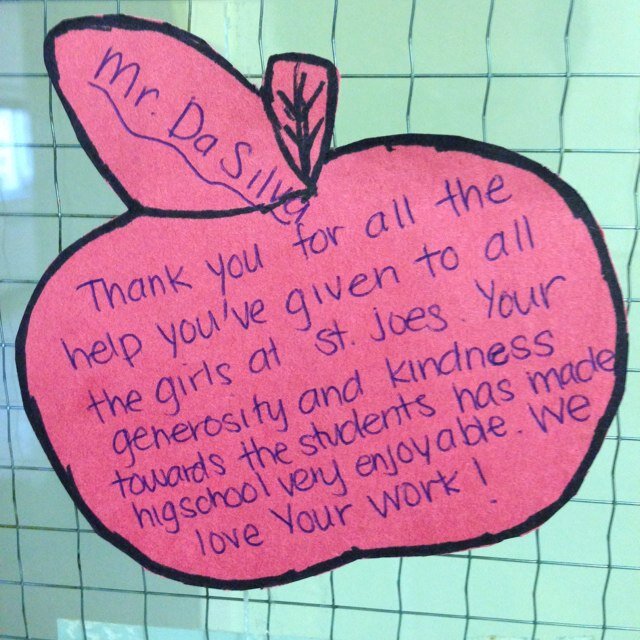 Mr. Da Silva
Thank you for all the
help you've given to all
the girls at st. joes. Your
generosity and kindness
towards the students has made
higschool very enjoyable. We
love Your work!